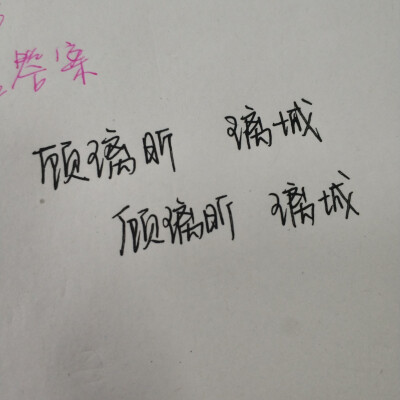 答案
顾璃昕 璃城
顾璃昕 璃城